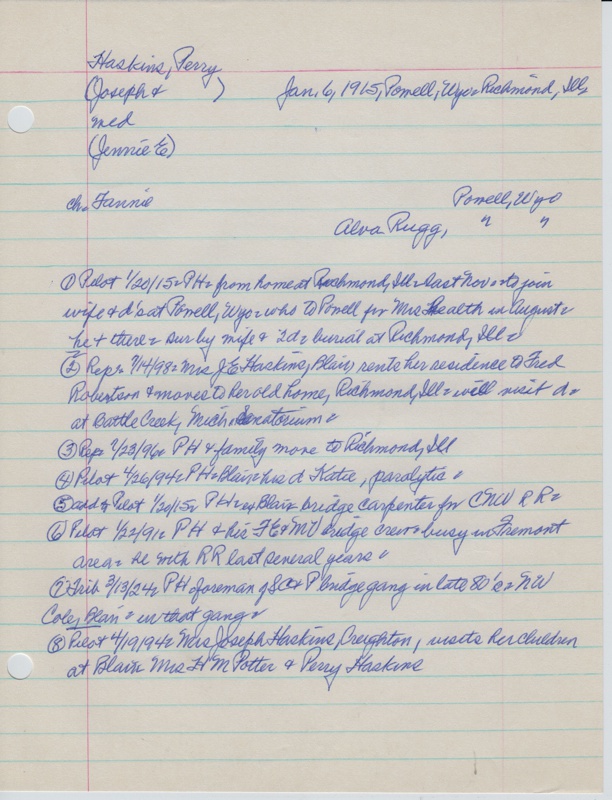 Haskins, Perry
(Joseph & ) Jan. 6, 1915, Powell, Wyo = Richmond, Ill =
med
(Jennie E)
ch = Fannie Powell, Wyo
Alva Rugg, " "
① Pilot 1/20/15 = PH = from home at Richmond, Ill = last Nov = to join
wife & d's at Powell, Wyo = who to Powell for Mrs Health in August =
he + there = sur by wife & 2d = burial at Richmond, Ill =
② Rep = 7/14/98 = Mrs J E Haskins, Blair, rents her residence to Fred
Robertson & moves to her old home, Richmond, Ill = will visit d =
at Battle Creek, Mich = Senatorium =
③ Rep = 1/23/96 = PH & family move to Richmond, Ill
④ Pilot 4/26/94 = PH = Blair = his d Katie, paralytic =
⑤ add to Pilot 1/20/15 = PH = ex Blair bridge carpenter for CNW RR =
⑥ Pilot 1/22/91 = PH & his FE&MV bridge crew = busy in Fremont
area = he with RR last several years =
⑦ Trib 3/13/24 = PH foreman of SC&P bridge gang in late 80's = NW
Cole, Blair = in that gang =
⑧ Pilot 4/19/94 = Mrs Joseph Haskins, Creighton, visits her children
at Blair = Mrs H M Potter & Perry Haskins